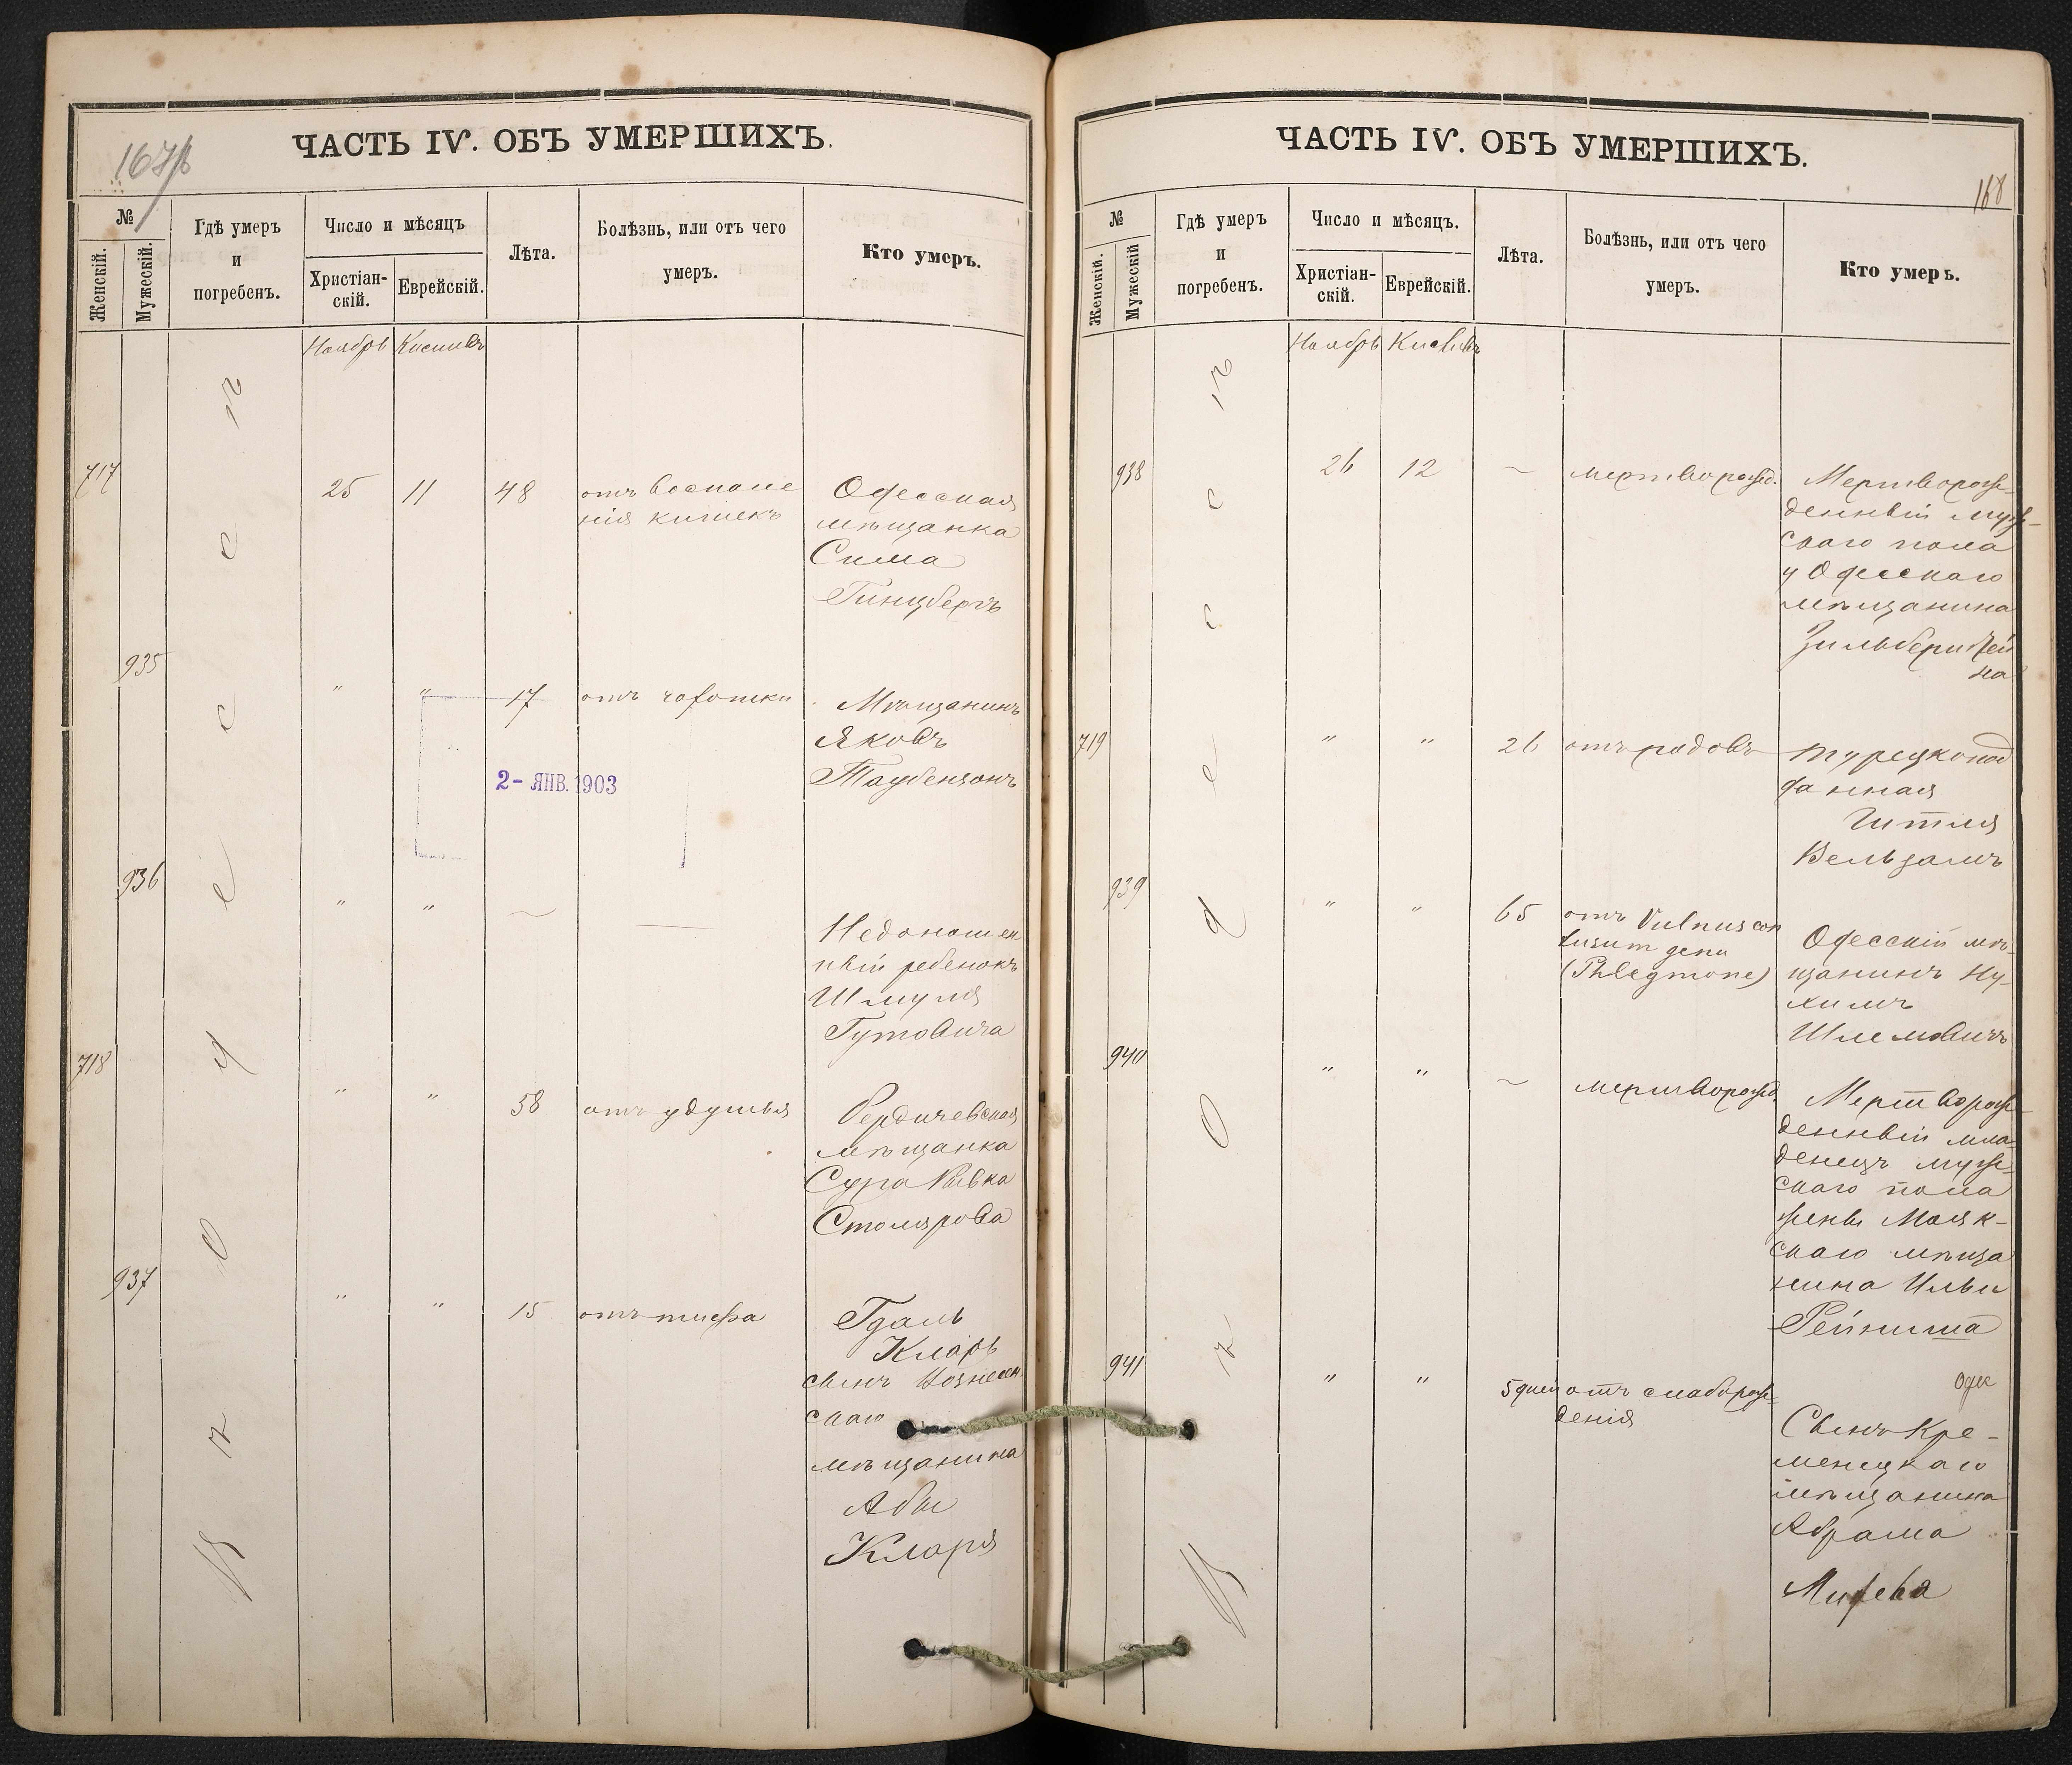 167/б
ЧАСТЬ IV. ОБЪ УМЕРШИХЪ.
№
Женскій.
Мужескій.
Гдѣ умеръ
и
погребенъ.
Число и мѣсяцъ
Христіан-
скій.
Еврейскій.
Лѣта.
Болѣзнь, или отъ чего
умеръ.
Кто умеръ.
Ноябрь
Кисливъ
Въ Одессѣ
717
25
11
48
отъ воспале
нія кишекъ
Одесская
мѣщанка
Сима
Гинцбергъ
935
"
"
17
отъ чахотки
Мѣщанинъ
Яковъ
Таубензонъ
2- ЯНВ. 1903
936
"
"
—
—
Недоношен
ный ребенокъ
Шмуля
Гутовича
718
"
"
58
отъ удушья
Бердичевская
мѣщанка
Сура Ривка
Столярова
937
"
"
15
отъ тифа
Гдаль
Кларъ
сынъ Вознесен
скаго
мѣщанина
Абы
Клара
168
ЧАСТЬ IV. ОБЪ УМЕРШИХЪ.
№
Женскій.
Мужескій
Гдѣ умеръ
и
погребенъ.
Число и мѣсяцъ.
Христіан-
скій.
Еврейскій.
Лѣта.
Болѣзнь, или отъ чего
умеръ.
Кто умеръ.
Ноябрь
Кисливъ
Въ Одессѣ
938
26
12
—
мертворожд.
Мертворож-
денный муж-
скаго пола
у Одесскаго
мѣщанина
Зильберштей
на
719
"
"
26
отъ родовъ
турецкопод
данная
Гитля
Вельзамъ
939
"
"
65
отъ Vulnus con
tusum genu
(Phlegmone)
Одесскій мѣ-
щанинъ Ну-
химъ
Шлемовичъ
940
"
"
—
мертворожд
Мертворож-
денный мла-
денецъ муж-
скаго пола
жены Маяк-
скаго мѣща
нина Ильи
Рейниша
941
"
"
5 дней
отъ слаборож-
денія
Оде
Сынъ Кре-
менецкаго
мѣщанина
Абрама